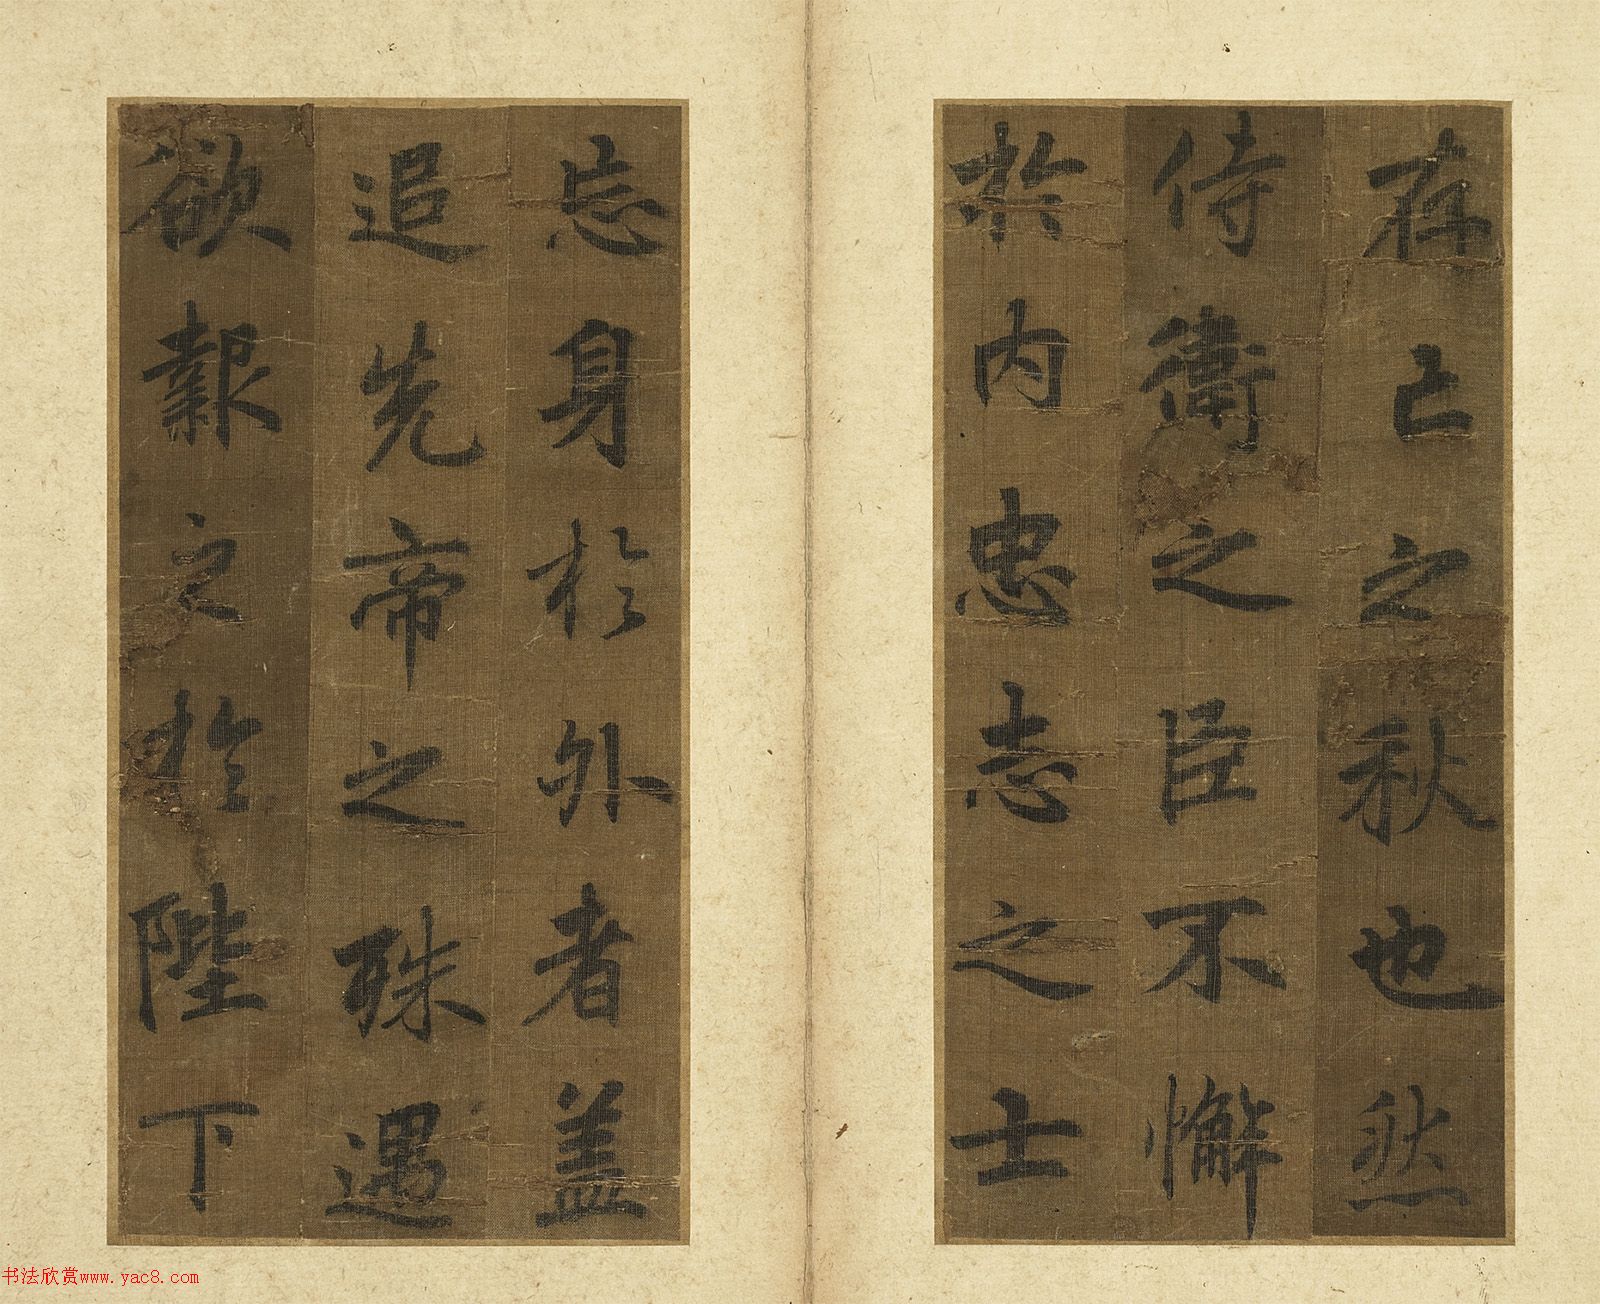 存亡之秋也然
侍衛之臣不懈
於内忠志之士
忘身於外者盖
追先帝之殊遇
欲報之於陛下
书法欣赏www.yac8.com